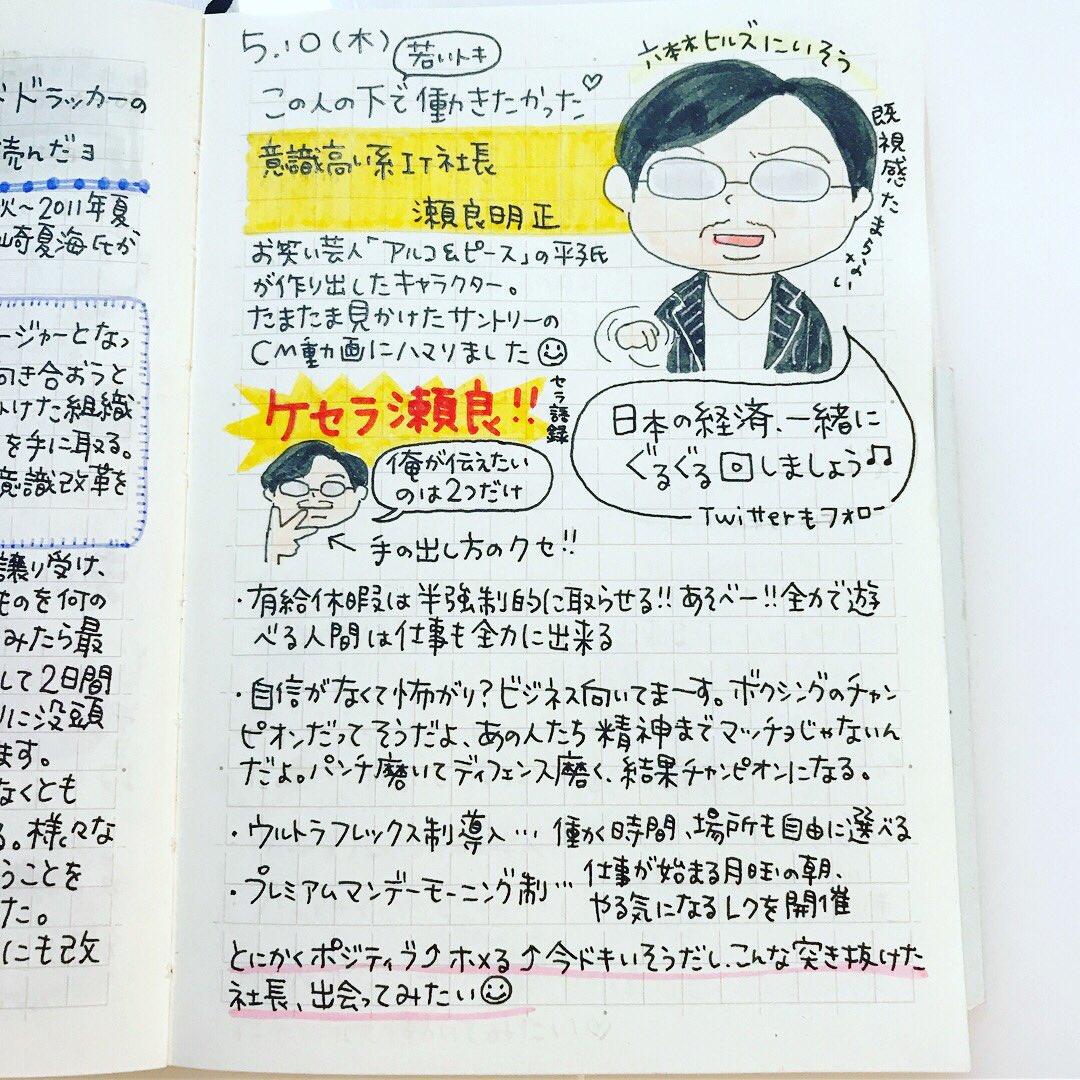 ドラッカーの
読んだヨ
～2011年夏
崎夏海氏が
ージャーとなっ
向き合おうと
かけた組織
を手に取る。
意識改革を
譲り受け、
ものを何の
みたら最
して2日間
りに没頭
ます。
なくとも
る。様々な
うことを
た。
にも改
5.10(木)
若いトキ
この人の下で働きたかった♡
意識高い系IT社長
瀬良明正
お笑い芸人「アルコ&ピース」の平子氏
が作り出したキャラクター。
たまたま見かけたサントリーの
CM動画にハマりました☺
六本木ヒルズにいそう
既視感たまらない
ケセラ瀬良!!
セラ語録
俺が伝えたい
のは2つだけ
← 手の出し方のクセ!!
日本の経済、一緒に
ぐるぐる回しましょう♫
Twitterもフォロー
・有給休暇は半強制的に取らせる!! あそべー!!全力で遊
べる人間は仕事も全力に出来る
・自信がなくて怖がり?ビジネス向いてまーす。ボクシングのチャン
ピオンだってそうだよ、あの人たち精神までマッチョじゃないん
だよ。パンチ磨いてディフェンス磨く、結果チャンピオンになる。
・ウルトラフレックス制導入… 働く時間、場所も自由に選べる
・プレミアムマンデーモーニング制…
仕事が始まる月旺の朝、
やる気になるレクを開催
とにかくポジティブ⤴ホメる⤴今ドキいそうだし、こんな突き抜けた
社長、出会ってみたい☺